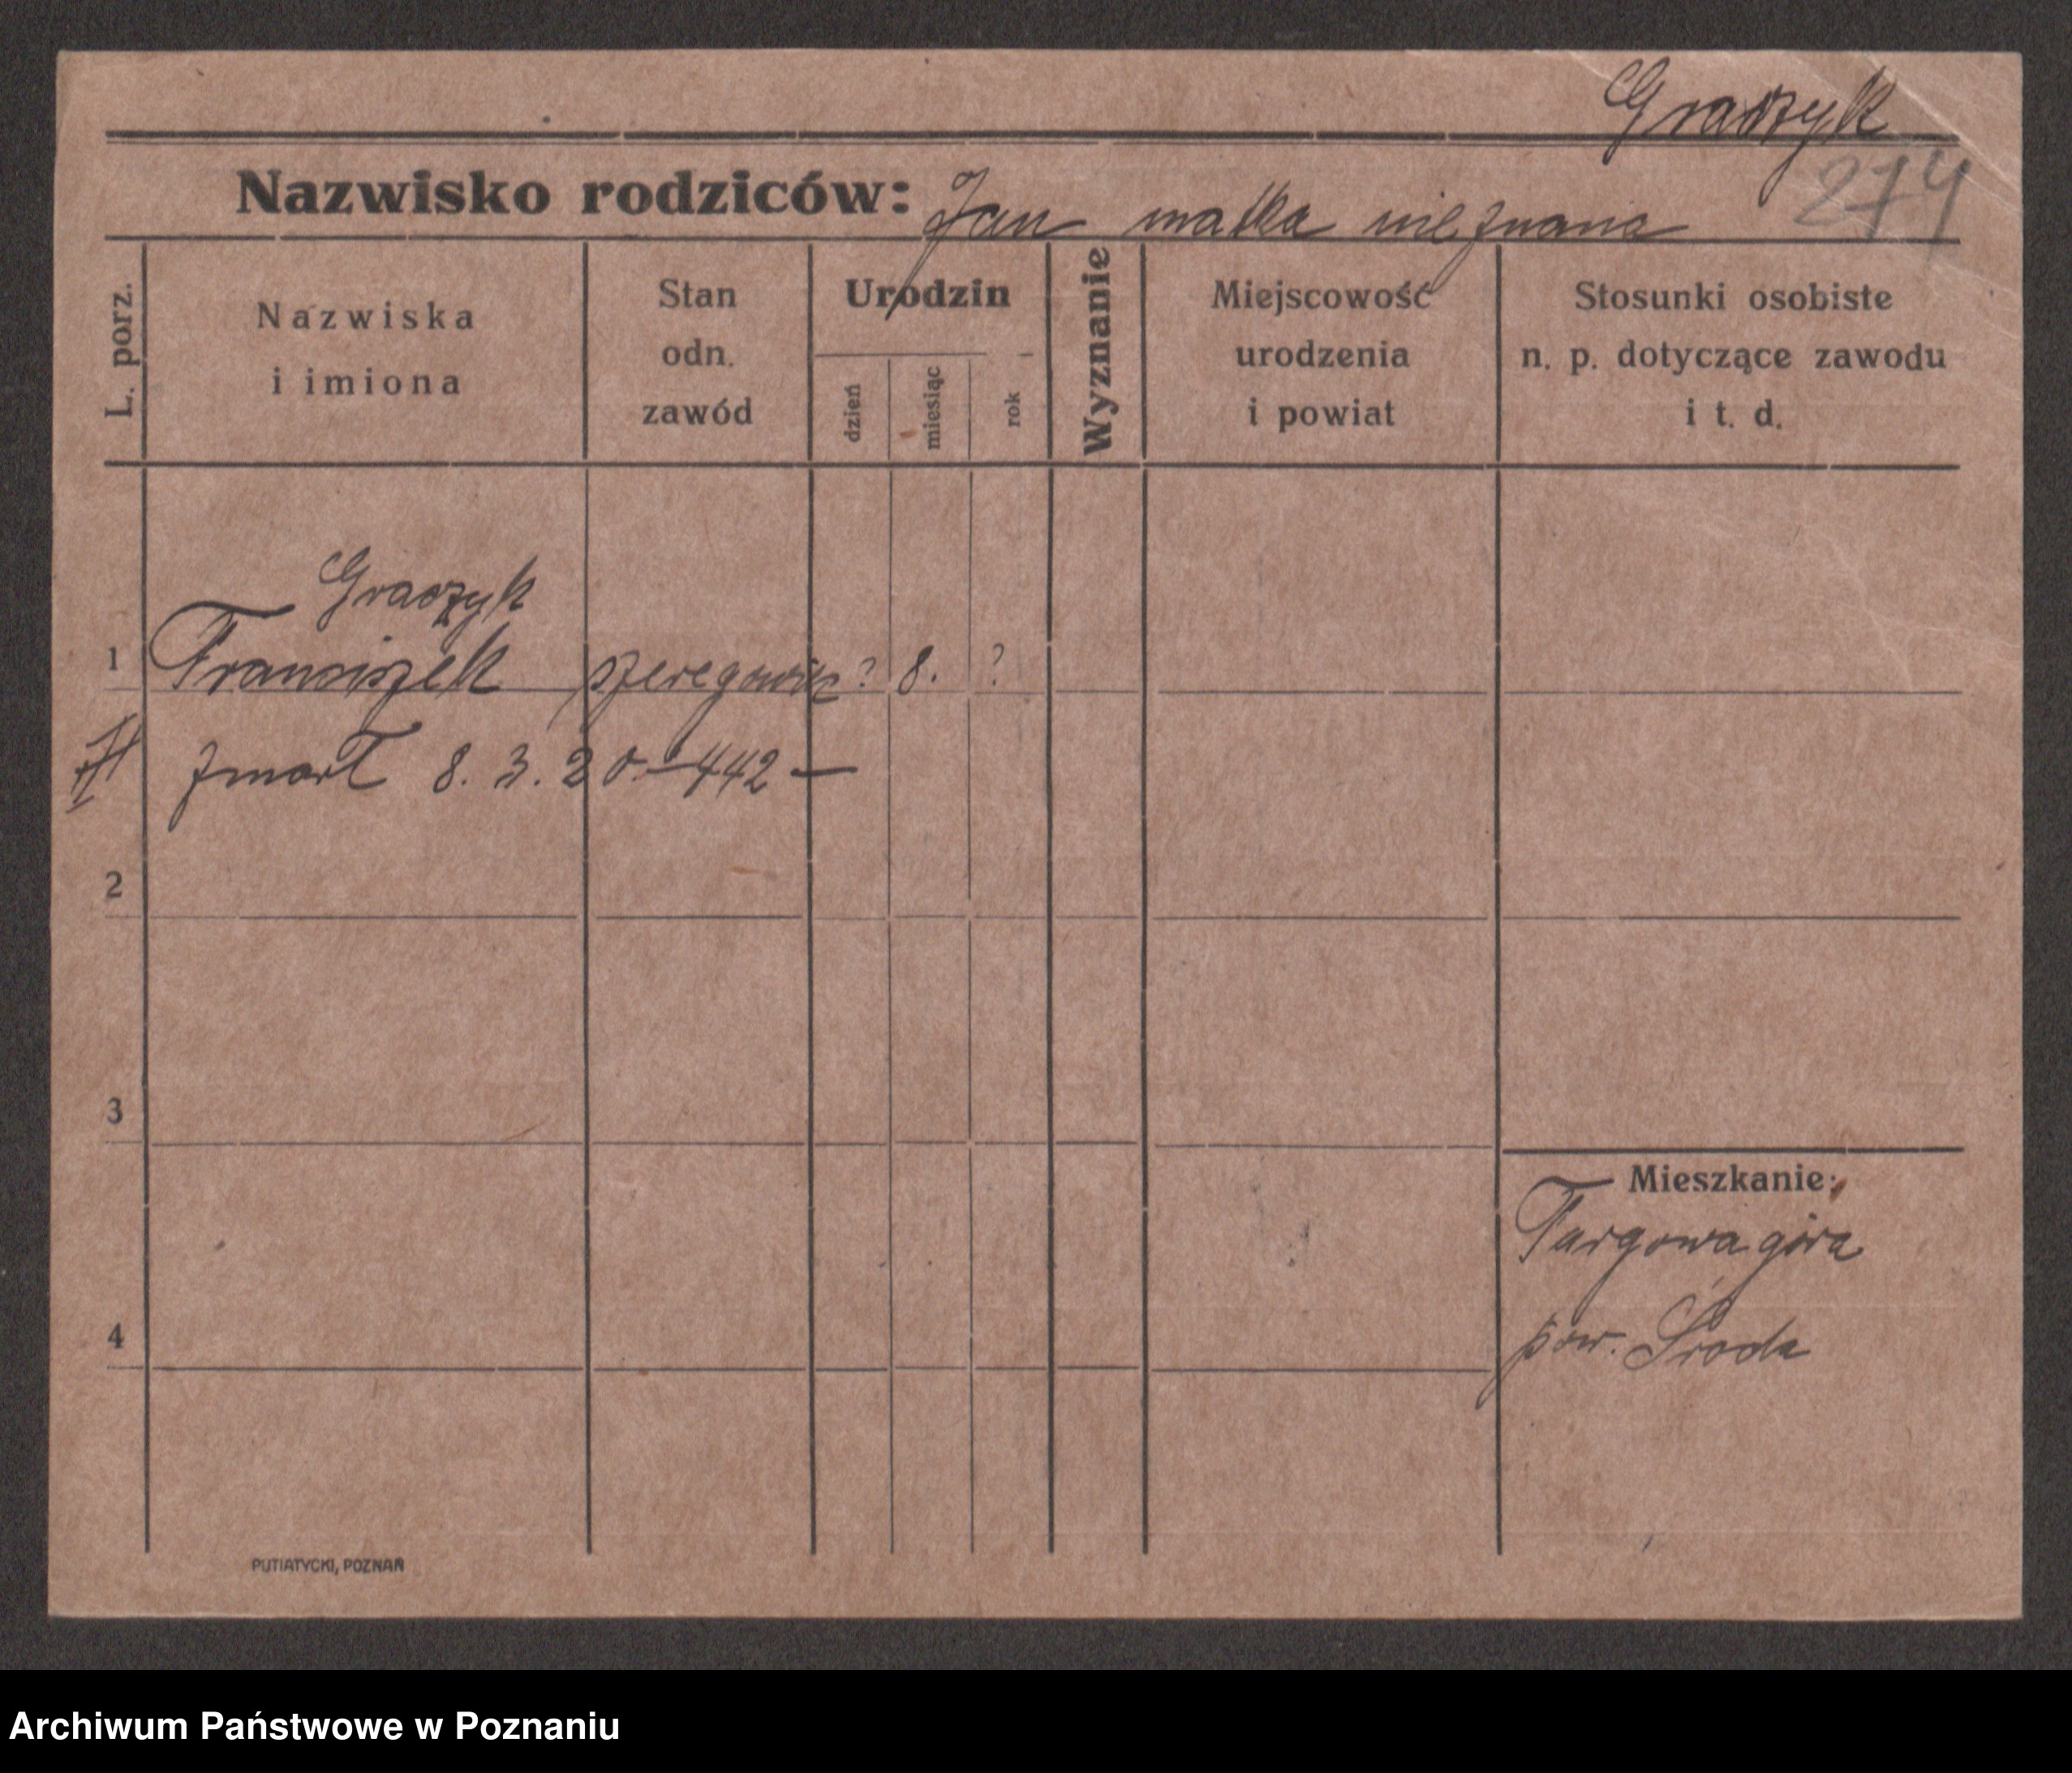 Graczyk
274
Nazwisko rodziców: Jan matka nieznana
L. porz.
Nazwiska
i imiona
Stan
odn.
zawód
Urodzin
dzień
miesiąc
rok
Wyznanie
Miejscowość
urodzenia
i powiat
Stosunki osobiste
n. p. dotyczące zawodu
i t. d.
Graczyk
1 Franciszek szeregowiec ? 8. ?
zmarł 8. 3. 20. – 442 –
2
3
Mieszkanie:
Targowa góra
4 pow. Środa
PUTIATYCKI, POZNAŃ
Archiwum Państwowe w Poznaniu